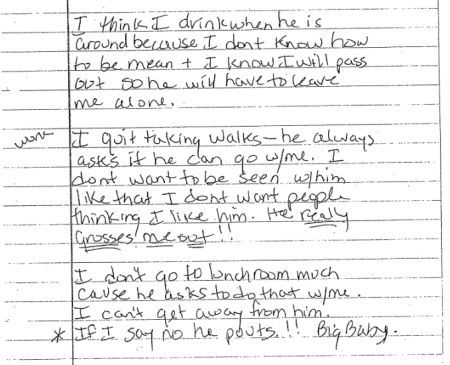 I think I drink when he is
around because I dont know how
to be mean + I know I will pass
out so he will have to leave
me alone.
work I quit taking walks - he always
asks if he can go w/me. I
dont want to be seen w/him
like that I dont want people
thinking I like him. He really
Grosses me out!!
I don't go to lunchroom much
cause he asks to do that w/me.
I can't get away from him.
* If I say no he pouts.!! Big Baby.